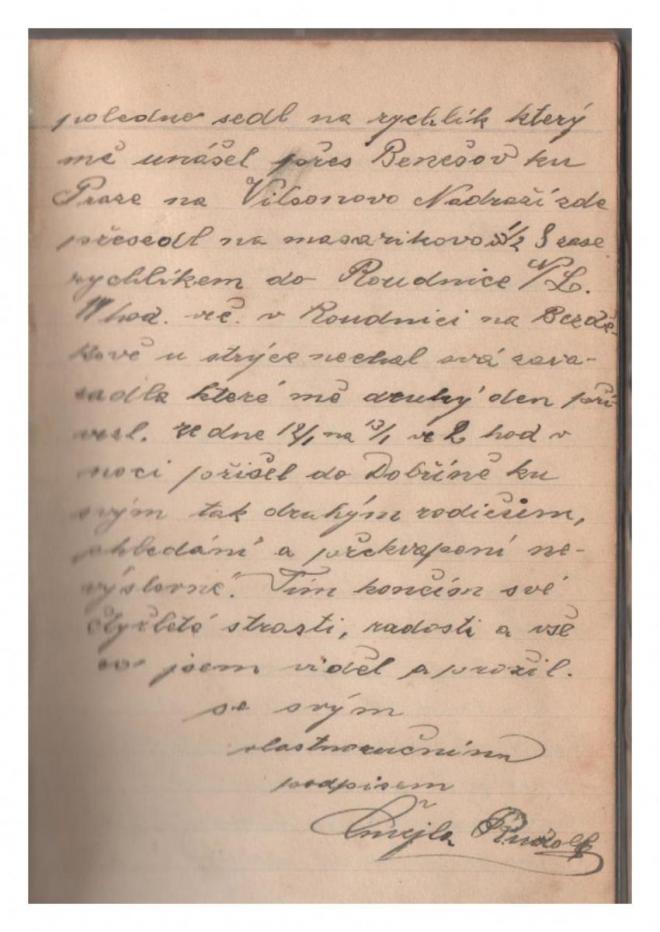 poledne sedl na rychlík který
mě unášel přes Benešov ku
Praze na Vilsonovo Nadraží zde
přesedl na masarikovo 5½ 8 zase
rychlíkem do Roudnice N/L.
11 hod. več. v Roudnici na Bezdě-
kově u strýce nechal svá zava-
zadla které mě druhý den při-
vezl. ze dne 12/1 na 13/1 ve 2 hod v
noci přišel do Dobříně ku
svým tak drahým rodičům,
shledání a překvapení ne-
výslovné. Tím končím své
čtyřleté strasti, radosti a vše
co jsem viděl a prožil.
se svým
vlastnoručním
podpisem
Rudolf